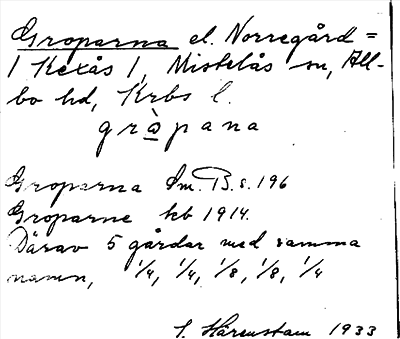 Groparna el. Norregård =
1 Kexås 1, Mistelås sn, All-
bo hd, Krbs l.
grà̲pana
Groparna Sm. B. s. 196
Groparne kb 1914.
Därav 5 gårdar med samma
namn, 1/4, 1/4, 1/8, 1/8, 1/4
S. Härenstam 1933